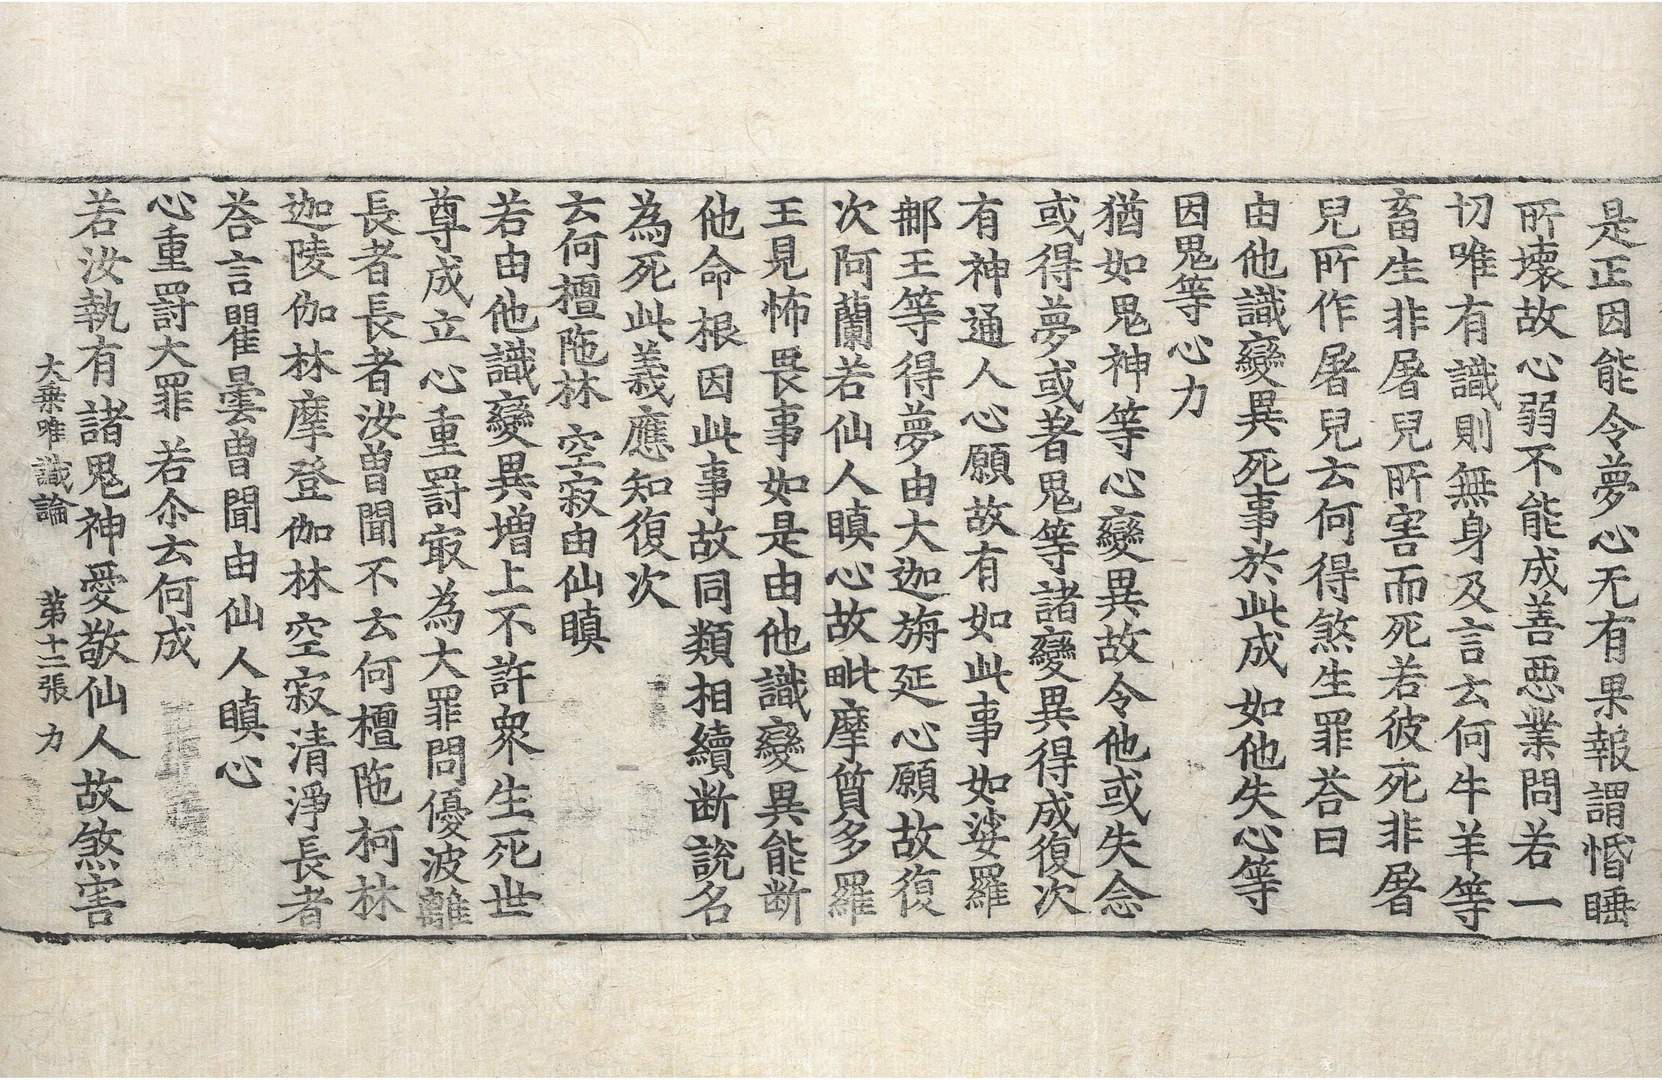 是正因能令夢心无有果報謂惛睡
所壞故心弱不能成善惡業問若一
切唯有識則無身及言云何牛羊等
畜生非屠兒所害而死若彼死非屠
兒所作屠兒云何得煞生罪荅曰
由他識變異死事於此成 如他失心等
因鬼等心力
猶如鬼神等心變異故令他或失念
或得夢或著鬼等諸變異得成復次
有神通人心願故有如此事如娑羅
郍王等得夢由大迦旃延心願故復
次阿蘭若仙人瞋心故毗摩質多羅
王見怖畏事如是由他識變異能断
他命根因此事故同類相續断說名
為死此義應知復次
云何檀陁林 空寂由仙瞋
若由他識變異增上不許衆生死世
尊成立心重罸㝡為大罪問優波離
長者長者汝曽聞不云何檀陁柯林
迦陵伽林摩登伽林空寂清淨長者
荅言瞿曇曽聞由仙人瞋心
心重罸大罪 若尒云何成
若汝執有諸鬼神愛敬仙人故煞害
大乗唯識論 第十二張 力